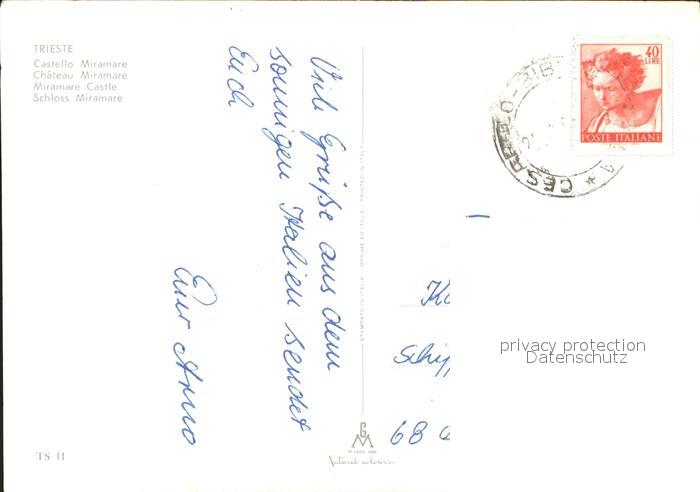 TRIESTE
Castello Miramare
Château Miramare
Miramare Castle
Schloss Miramare
Viele Grüße aus dem
sonnigen Italien sendet
Euch
Euer Arno
TS II
STAMPATO IN ITALIA - IMPRIMÉ EN ITALIE - PRINTED IN ITALY
natural colours
40
LIRE
POSTE ITALIANE
CESAR
Schif
68
privacy protection
Datenschutz